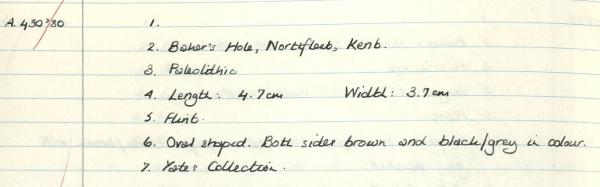 A. 430'80 1.
2. Baker's Hole, Northfleet, Kent.
3. Paleolithic
4. Length: 4.7cm Width: 3.7cm
5. Flint.
6. Oval shaped. Both sides brown and black/grey in colour.
7. Yates Collection.